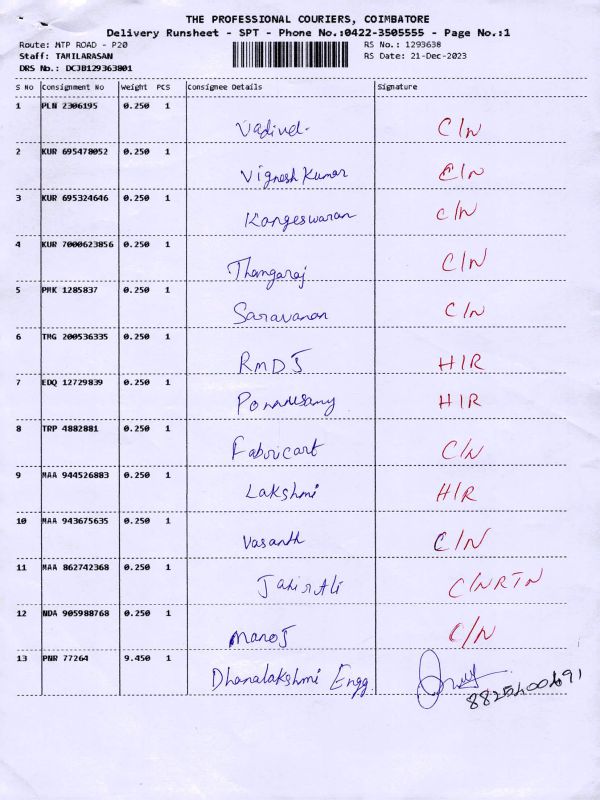 THE PROFESSIONAL COURIERS, COIMBATORE
Delivery Runsheet - SPT - Phone No.:0422-3505555 - Page No.:1
Route: MTP ROAD - P20 RS No.: 1293638
Staff: TAMILARASAN RS Date: 21-Dec-2023
DRS No.: DCJB129363801
S No Consignment No Weight PCS Consignee Details Signature
1 PLN 2306195 0.250 1
Vadivel C/N
2 KUR 695478052 0.250 1
Vignesh Kumar C/N
3 KUR 695324646 0.250 1
Kangeswaran C/N
4 KUR 7000623856 0.250 1
Thangaraj C/N
5 PMK 1285837 0.250 1
Saravanan C/N
6 TMG 200536335 0.250 1
RMDJ H/R
7 EDQ 12729839 0.250 1
Ponnusamy H/R
8 TRP 4882881 0.250 1
Fabricart C/N
9 MAA 944526883 0.250 1
Lakshmi H/R
10 MAA 943675635 0.250 1
Vasanth C/N
11 MAA 862742368 0.250 1
C/NRTN
12 NDA 905988768 0.250 1
Manoj C/N
13 PNR 77264 9.450 1
Dhanalakshmi Engg.